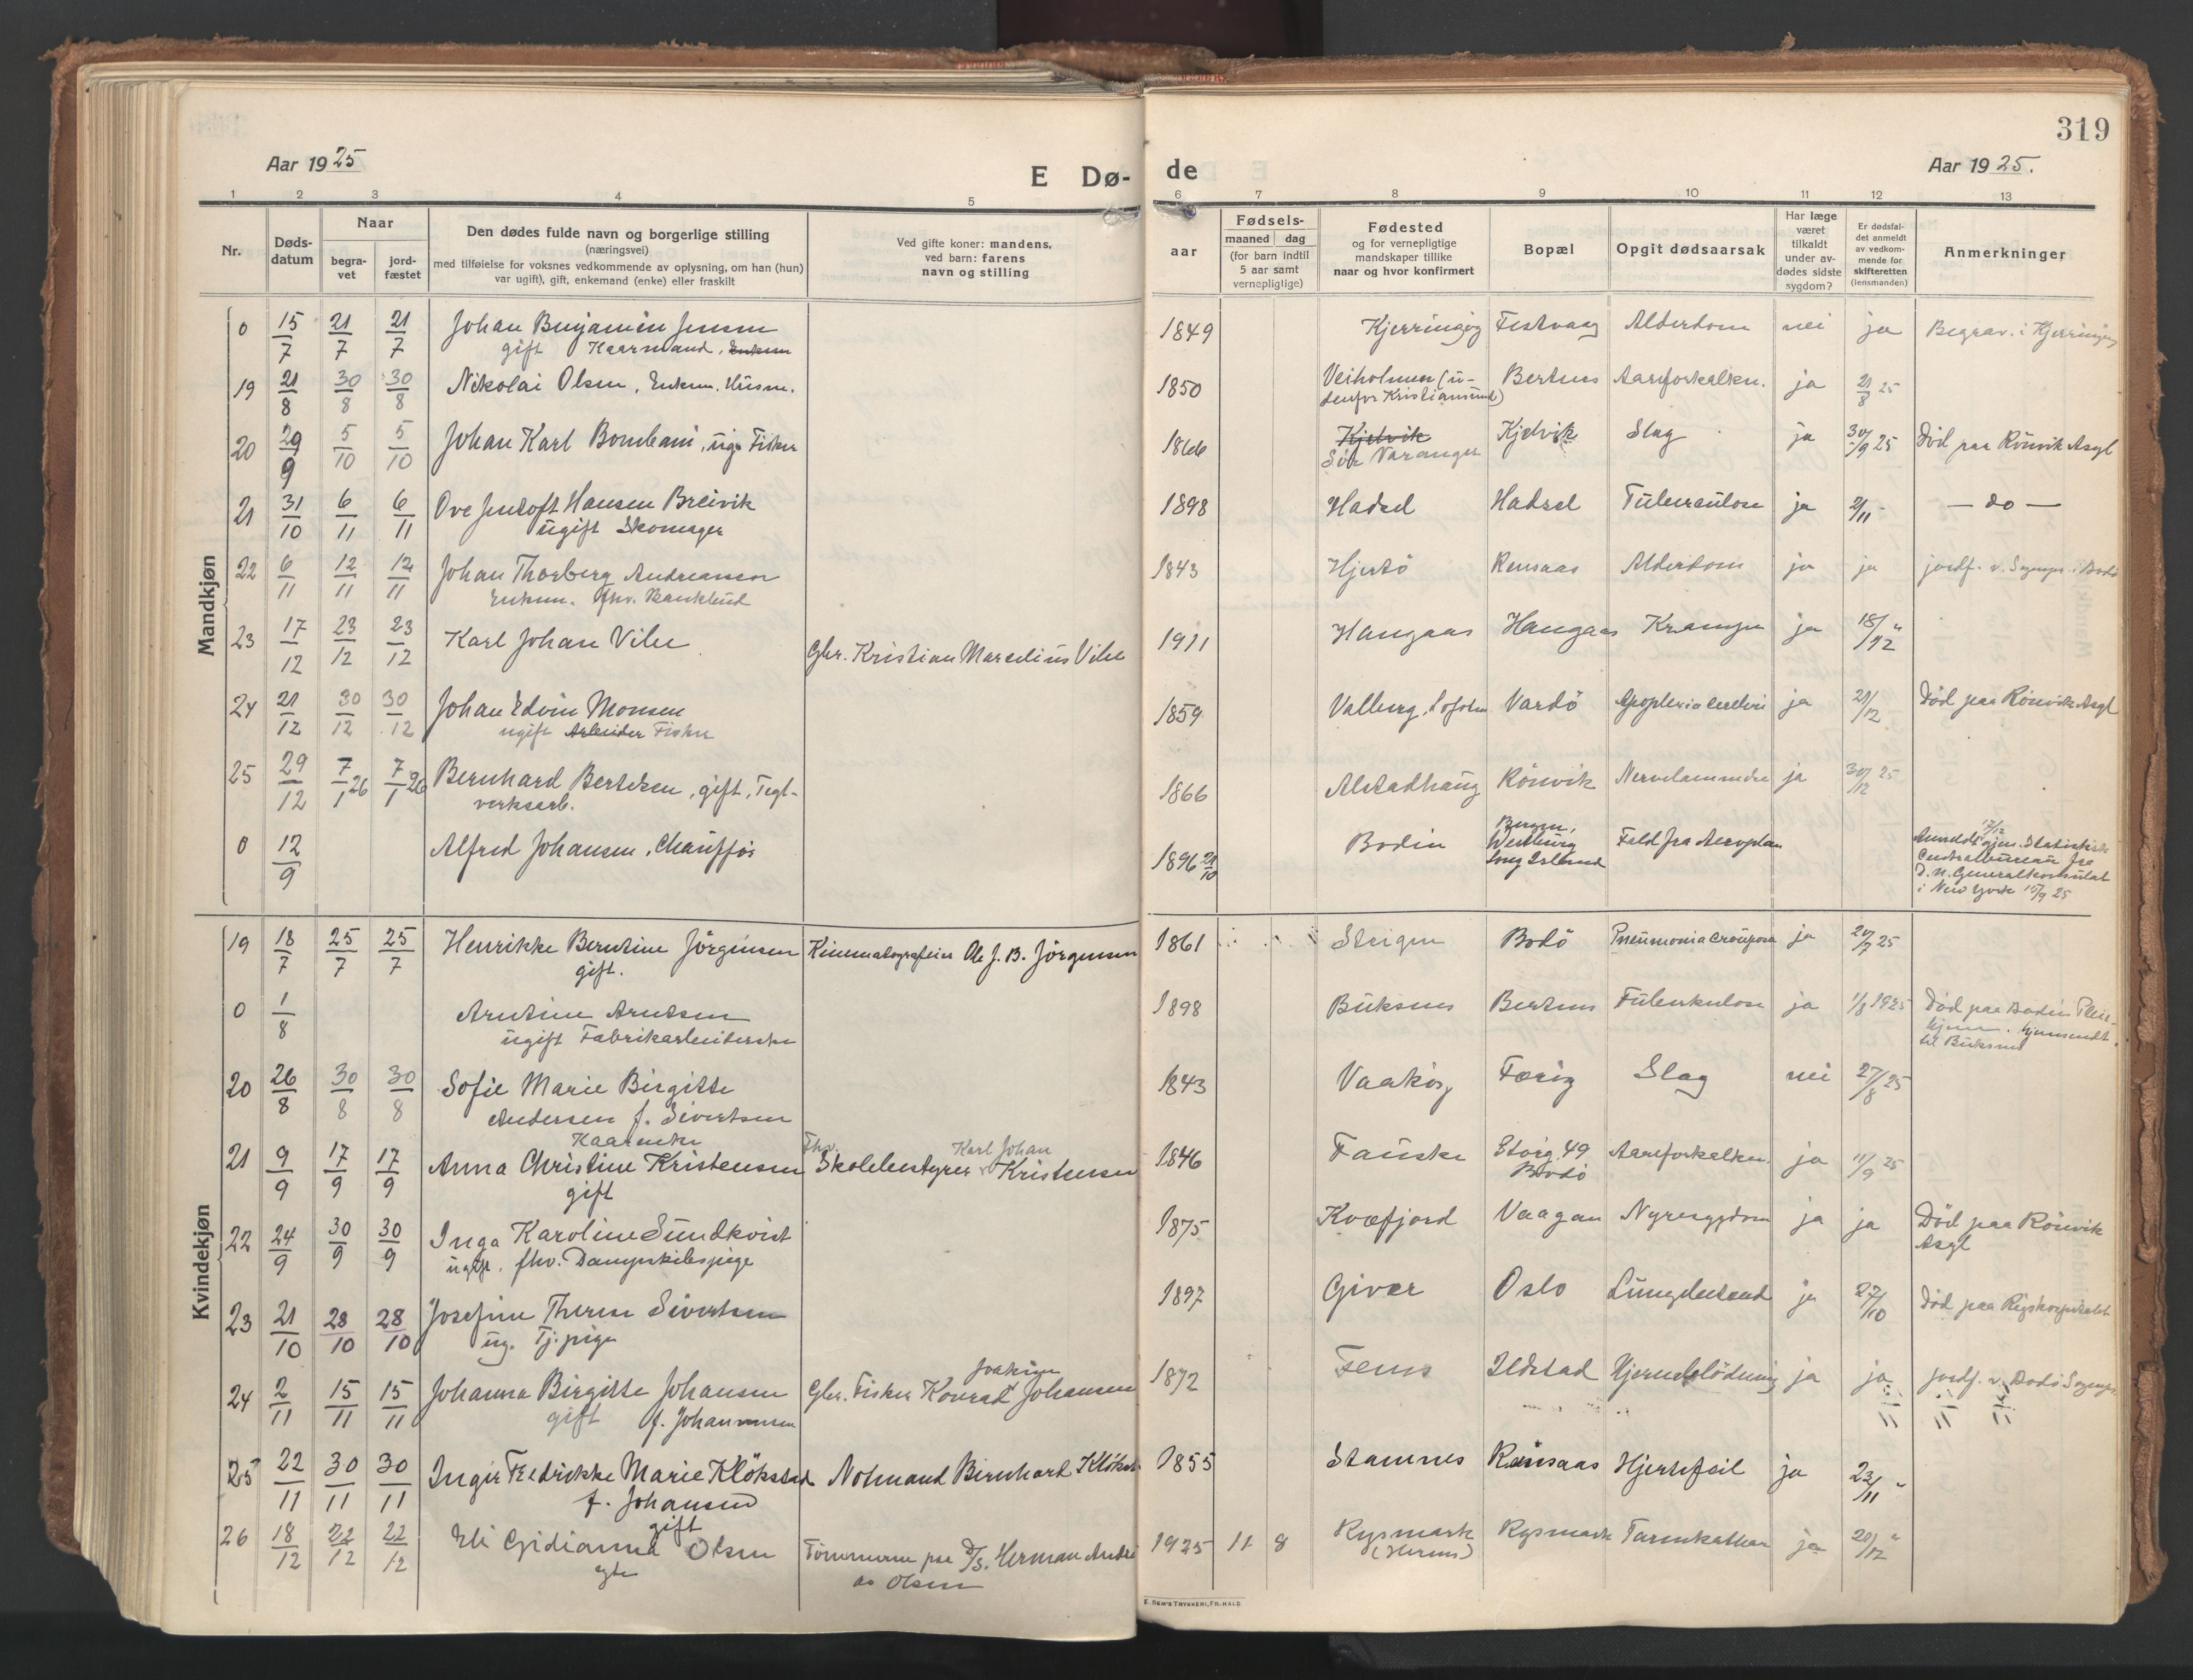 319
Aar 1925
E Dø-
de
Aar 1925.
1 2 3 4 5 6 7 8 9 10 11 12 13
Nr.
Døds-
datum
Naar
begra-
vet
jord-
fæstet
Den dødes fulde navn og borgerlige stilling
(næringsvei)
med tilføielse for voksnes vedkommende av oplysning, om han (hun)
var ugift), gift, enkemand (enke) eller fraskilt
Ved gifte koner: mandens,
ved barn: farens
navn og stilling
aar
Fødsels-
maaned dag
(for barn indtil
5 aar samt
vernepligtige)
Fødested
og for vernepligtige
mandskaper tillike
naar og hvor konfirmert
Bopæl
Opgit dødsaarsak
Har læge
været
tilkaldt
under av-
dødes sidste
sygdom?
Er dødsfal-
det anmeldt
av vedkom-
mende for
skifteretten
(lensmanden)
Anmerkninger
Mandkjøn
0 15/7 21/7 21/7 Johan Benjamin Jensen 1849 Kjerringøy Festvaag Alderdom nei ja Begrav. i Kjerringøy
gift Kaarmand, Enkem
19 21/8 30/8 30/8 Nikolai Olsen, Enkem. Husm. 1850 Veiholmen (u- Bertnes Aareforkalkn. ja 21/8 25
denfor Kristiansund)
20 29/9 5/10 5/10 Johan Karl Bombani, ug. Fisker 1866 Kjelvik Kjelvik Slag ja 30/9 25 Død paa Rönvik Asyl
Sör Varanger
21 31/10 6/11 6/11 Ove Jentoft Hansen Breivik 1898 Hadsel Hadsel Tuberculose ja 2/11 - — do —
ugift Skomager
22 6/11 12/11 12/11 Johan Thorberg Andreassen 1843 Hjertö Rensaas Alderdom ja ja jordf. v. Sognepr. i Bodö
Enkem. fhv. Bankbud
23 17/12 23/12 23/12 Karl Johan Vilee Gbr. Kristian Marcelius Vilee 1911 Haugaas Haugaas Krampe ja 18/12 "
24 21/12 30/12 30/12 Johan Edvin Monsen 1859 Valberg, Lofoten Vardö Apoplexia cerebri ja 21/12 Död paa Rönvik Asyl
ugift Arbeider Fisker
25 29/12 7/1 26 7/1 26 Bernhard Bertelsen, gift, Tegl- 1866 Alstadhaug Rönvik Nervelammelse ja 30/12 25
verksarb.
0 12/9 Alfred Johansen, Chauffør 1896 21/10 Bodin Westbury Fald fra Aeroplan 17/12
Long Island
Anmeldt gjen. Statistisk
Centralbureau fra
D. N. Generalkonsulat
i New York 15/9 25
Kvindekjøn
19 18/7 25/7 25/7 Henrikke Berntine Jörgensen Kinematografeier Ole J. B. Jörgensen 1861 Steigen Bodö Pneumonia crouposa ja 20/7 25
gift.
0 1/8 Arntine Arntsen 1898 Buksnes Bertnes Tuberkulose ja 1/8 1925 Död paa Bodin Pleie-
ugift Fabrikarbeiderske hjem. hjemsendt
til Buksnes
20 26/8 30/8 30/8 Sofie Marie Birgitte 1843 Vaakøy Færøy Slag nei 27/8 25
Andersen f. Sivertsen
Kaarenke
21 9/9 17/9 17/9 Anna Christine Kristensen Fhv. Skolebestyrer Karl Johan Kristensen 1846 Fauske Storg. 49 Aareforkalkn. ja 11/9 25
gift Bodö
22 24/9 30/9 30/9 Inga Karoline Sundkvist 1875 Kvæfjord Vaagan Nyresygdom ja ja Död paa Rönvik
ugift. fhv. Dampskibspige Asyl
23 21/10 28/10 28/10 Josefine Therese Sivertsen 1897 Givær Oslo Lungebetænd ja 22/10 Död paa Rigshospitalet
ug. Tj.pige
24 2/11 15/11 15/11 Johanna Birgitte Johansen Gbr. Fisker Konrad Joakim Johansen 1872 Fenes Ildstad Hjerneblödning ja ja jordf. v. Bodö Sognepr.
gift f. Johannesen
25 22/11 30/11 30/11 Inger Fredrikke Marie Klökstad Notmand Bernhard Klökst. 1855 Stamnes Rensaas Hjertefeil ja 23/11 "
f. Johansen
gift
26 18/12 22/12 22/12 Eli Gidianna Olsen Tömmerm. paa D/S. Herman Andre- 1925 11 8 Rysmark Rysmark Tarmkatharr ja 20/12 "
egte as Olsen
E. SEM'S TRYKKERI, FR.HALD